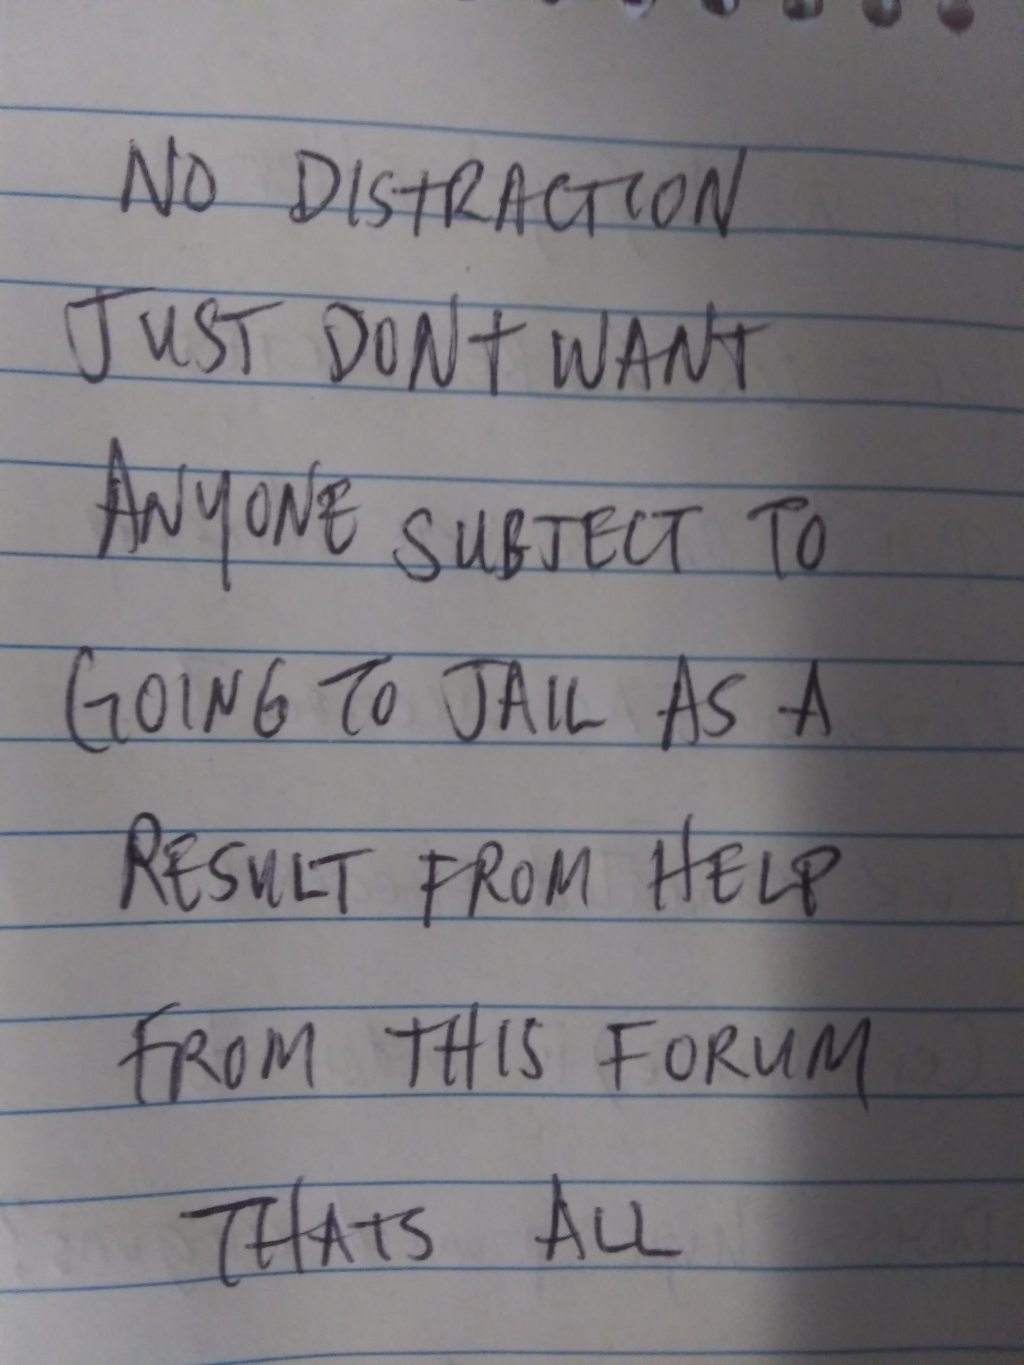 NO DISTRACTION
JUST DONT WANT
ANYONE SUBJECT TO
GOING TO JAIL AS A
RESULT FROM HELP
FROM THIS FORUM
THATS ALL